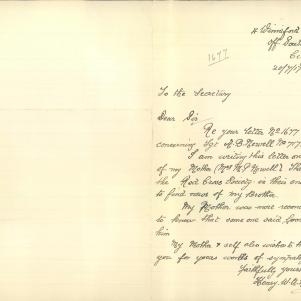 4 Winnifred
Off
20/7/17
1677
To the Secretary
Dear Sir
Re your letter No 1677
concerning Sgt A.B. Newell No 717
I am writing this letter on
of my Mother (Mrs M.J. Newell)
the Red Cross Society in their en
to find news of my Brother.
My Mother was more
to know that some one said Goo
him
My Mother & self also wishes to
you for yours words of sympat
Faithfully yours
Henry W.